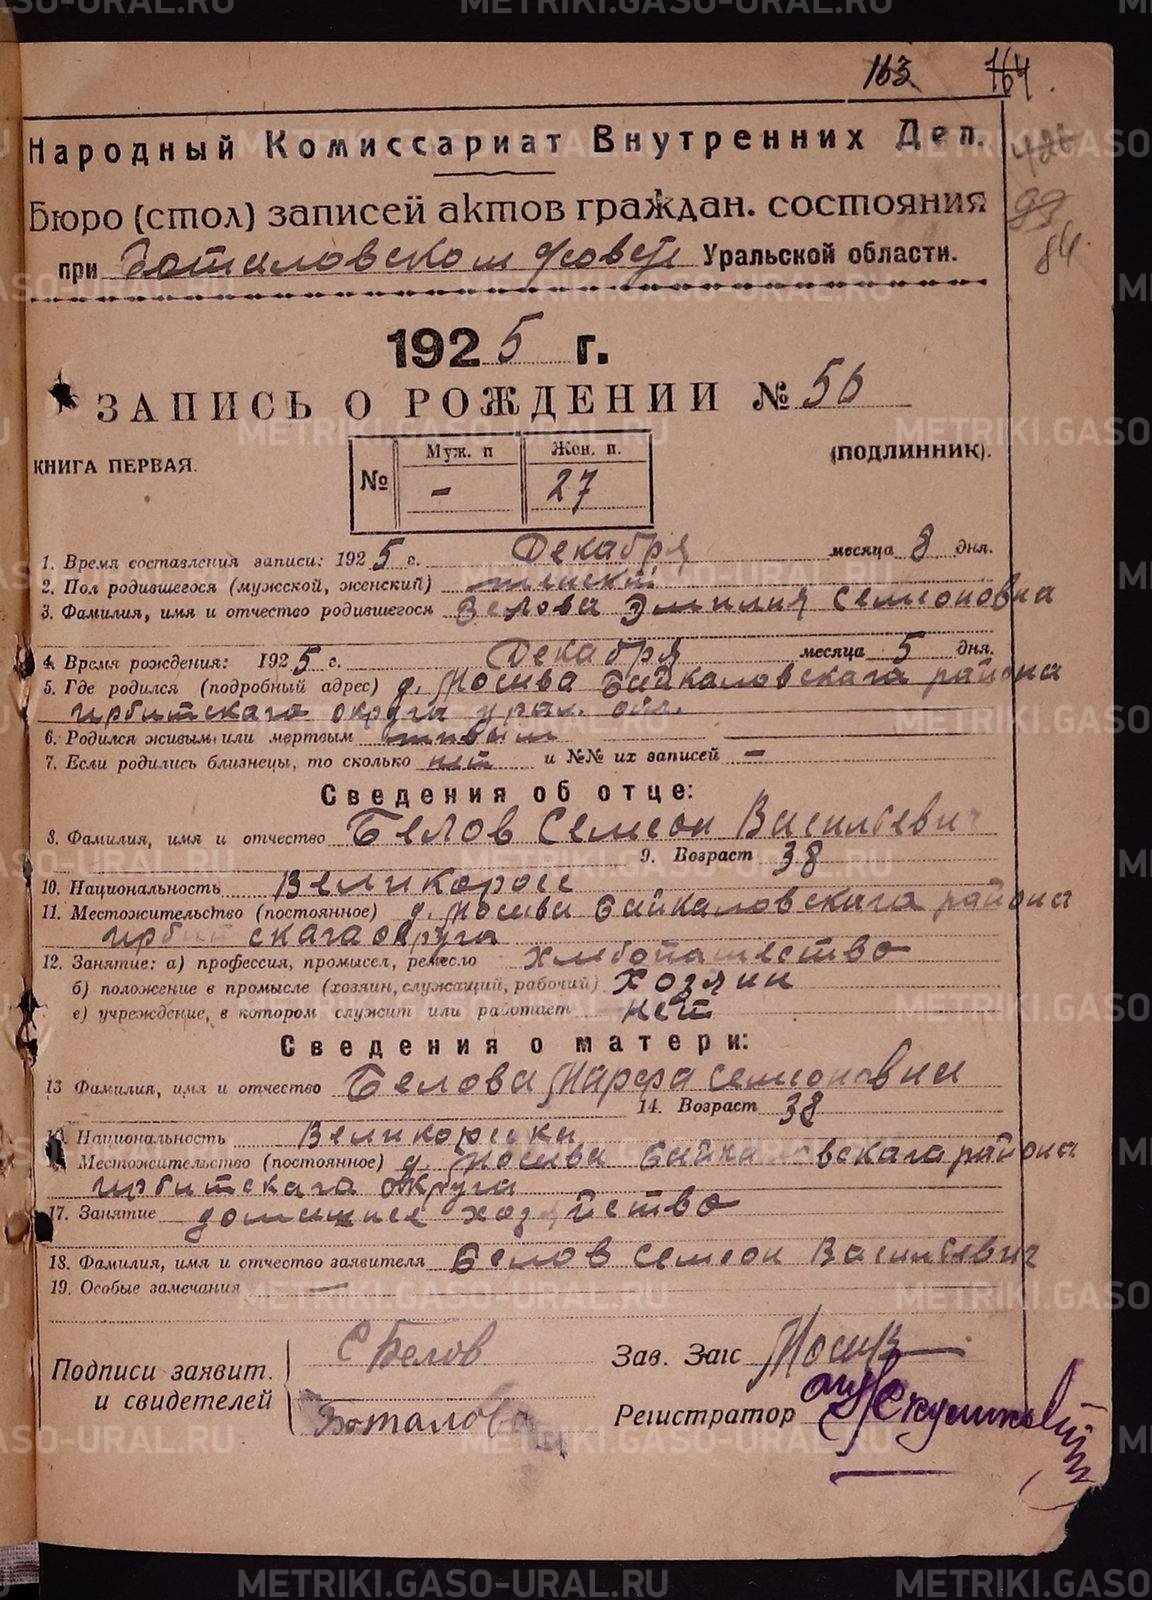 163 164.
426
93
84.
Народный Комиссариат Внутренних Дел.
Бюро (стол) записей актов граждан. состояния
при Боталовском с/совете Уральской области.
1925 г.
ЗАПИСЬ О РОЖДЕНИИ № 56
КНИГА ПЕРВАЯ. (ПОДЛИННИК).
№ Муж. п Жен. п.
- 27
1. Время составления записи: 1925 г. Декабря месяца 8 дня.
2. Пол родившегося (мужской, женский) женский
3. Фамилия, имя и отчество родившегося Белова Эмилия Семеоновна
4. Время рождения: 1925 г. Декабря месяца 5 дня.
5. Где родился (подробный адрес) д. Байкаловскага района
ирбитскага округа урал. обл.
6. Родился живым или мертвым живым
7. Если родились близнецы, то сколько нет и №№ их записей -
Сведения об отце:
8. Фамилия, имя и отчество Белов Семеон Васильевич
9. Возраст 38
10. Национальность Великорос
11. Местожительство (постоянное) д. Байкаловскага района
ирбитскага округа
12. Занятие: а) профессия, промысел, ремесло хлебопашество
б) положение в промысле (хозяин, служащий, рабочий) хозяин
в) учреждение, в котором служит или работает нет
Сведения о матери:
13 Фамилия, имя и отчество Белова Марфа Семеоновна
14. Возраст 38
15. Национальность Великоруска
Местожительство (постоянное) д. Байкаловскага района
ирбитскага округа
17. Занятие домашнее хозяйство
18. Фамилия, имя и отчество заявителя Белов Семеон Васильевич
19. Особые замечания —
Подписи заявит.
и свидетелей
С Белов
Боталова
Зав. Загс
Регистратор
METRIKI.GASO-URAL.RU